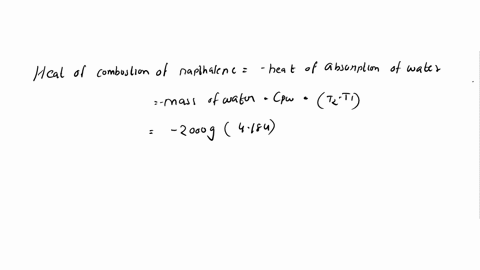 Heat of combustion of napthalene = - heat of absorption of water
= - mass of water • Cpw • (T2-T1)
= -2000g ( 4.184)